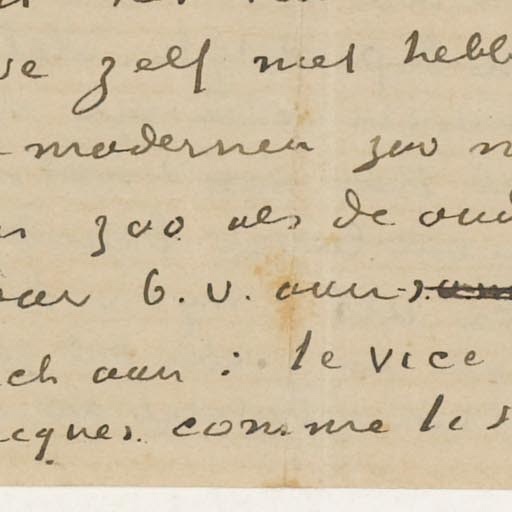 ve zelf niet hebb
modernen zoo n
zoo als de oud
aar b. v. aan
ch aan : le vice
cques comme les